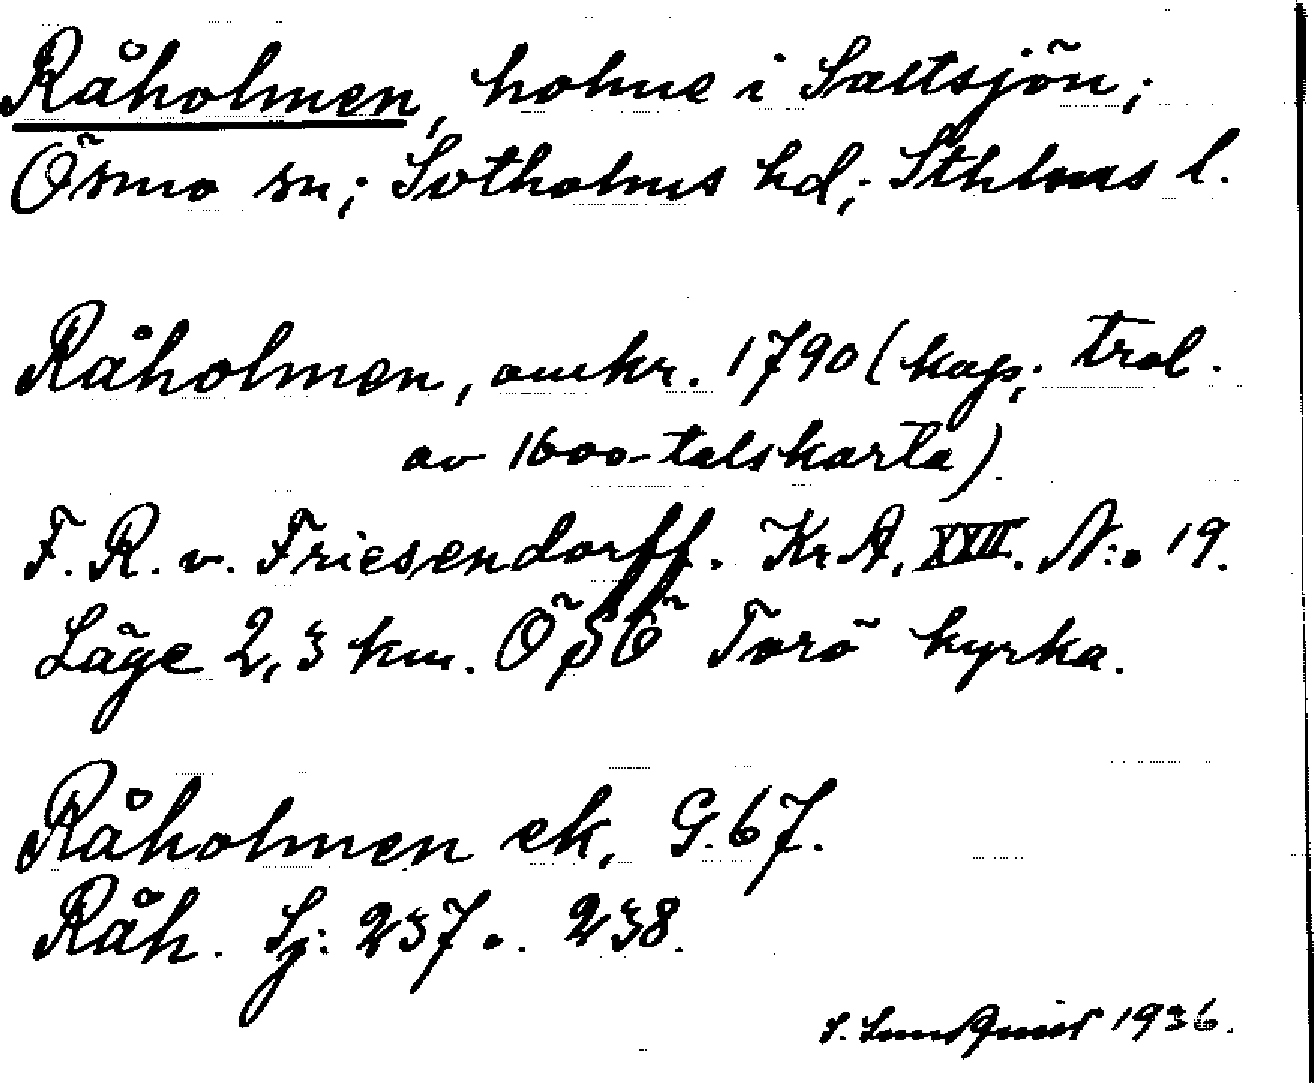 Råholmen, holme i Saltsjön;
Ösmo sn; Sotholms hd; Sthlms l.
Råholmen, omkr. 1790 (kop; trol.
av 1600-talskarta)
F. R. v. Friesendorff. Kr A. XVII. N:o 19.
Läge 2,3 km. ÖSÖ Torö kyrka.
Råholmen ek. G. 67.
Råh. Sj: 237 o. 238.
S. Lundquist 1936.